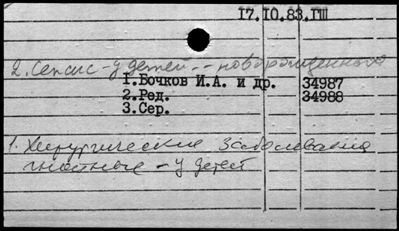 17.10.83.ГШ
2. Сепсис - у детей - новорожденных
1. Бочков И.А. и др. 34987
2. Ред. 34988
3. Сер.
1. Хирургические заболевания
гнойные - у детей